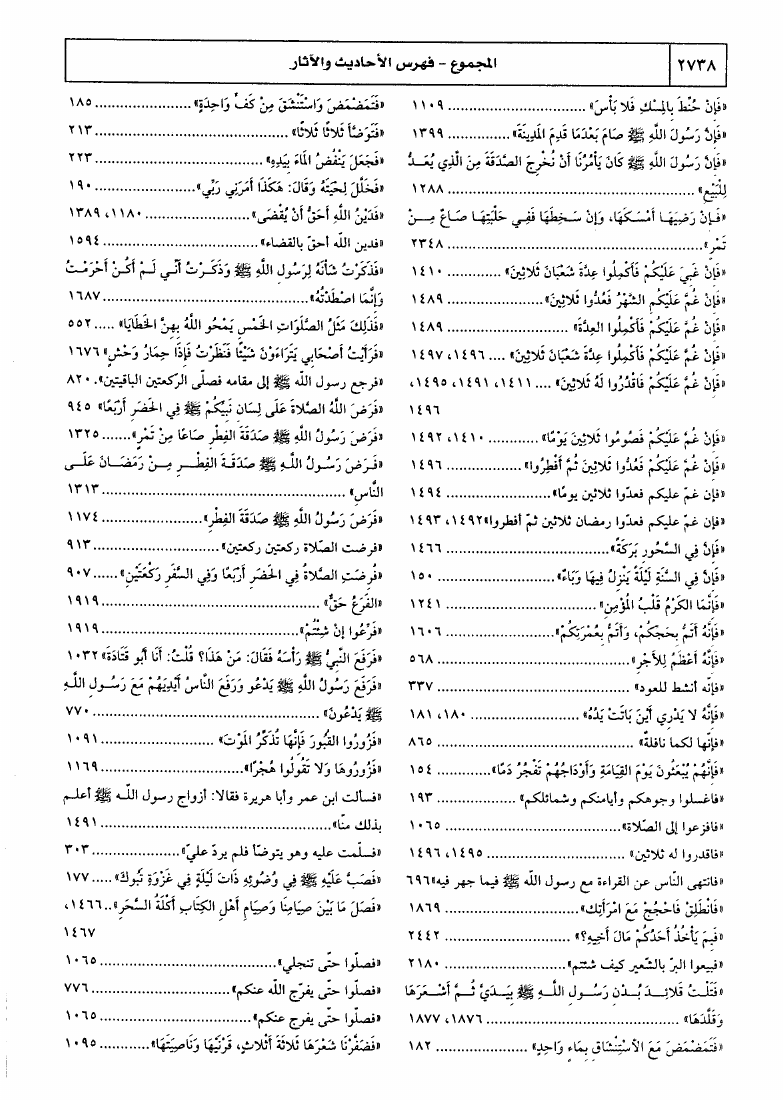 ٢٧٣٨
المجموع - فهرس الأحاديث والآثار
«فَإِنْ حُنِّطَ بِالمِسْكِ فَلا بَأْسَ» .............................. ١١٠٩
«فَإِنَّ رَسُولَ اللَّهِ ﷺ صَامَ بَعْدَمَا قَدِمَ المَدِينَةَ» .............. ١٣٩٩
«فَإِنَّ رَسُولَ اللَّهِ ﷺ كَانَ يَأْمُرُنَا أَنْ نُخْرِجَ الصَّدَقَةَ مِنَ الَّذِي يُعَـدُّ
لِلْبَيْعِ» .............................. ١٢٨٨
«فَـإِنْ رَضِيَهَـا أَمْسَكَهَـا، وَإِنْ سَخِطَهَا فَفِـي حَلْبَتِهَـا صَـاعٌ مِــنْ
تَمْرٍ» .............................. ٢٣٤٨
«فَإِنْ غَبِيَ عَلَيْكُمْ فَأَكْمِلُوا عِدَّةَ شَعْبَانَ ثَلاثِينَ» ............ ١٤١٠
«فَإِنْ غُمَّ عَلَيْكُمِ الشَّهْرُ فَعُدُّوا ثَلاثِينَ» .............................. ١٤٨٩
«فَإِنْ غُمَّ عَلَيْكُمْ فَأَكْمِلُوا العِدَّةَ» .............................. ١٤٨٩
«فَإِنْ غُمَّ عَلَيْكُمْ فَأَكْمِلُوا عِدَّةَ شَعْبَانَ ثَلاثِينَ» .... ١٤٩٦، ١٤٩٧
«فَإِنْ غُمَّ عَلَيْكُمْ فَاقْدُرُوا لَهُ ثَلاثِينَ» .... ١٤١١، ١٤٩١، ١٤٩٥،
١٤٩٦
«فَإِنْ غُمَّ عَلَيْكُمْ فَصُومُوا ثَلاثِينَ يَوْمًا» ............ ١٤١٠، ١٤٩٢
«فَإِنْ غُمَّ عَلَيْكُمْ فَعُدُّوا ثَلاثِينَ ثُمَّ أَفْطِرُوا» .................. ١٤٩٦
«فإن غمّ عليكم فعدّوا ثلاثين يومًا» .............................. ١٤٩٤
«فإن غمّ عليكم فعدوا رمضان ثلاثين ثمّ أفطروا» ١٤٩٢، ١٤٩٣
«فَإِنَّ فِي السَّحُورِ بَرَكَةً» .............................. ١٤٦٦
«فَإِنَّ فِي السَّنَةِ لَيْلَةً يَنْزِلُ فِيهَا وَبَاءٌ» .............................. ١٥٠
«فَإِنَّمَا الكَرْمُ قَلْبُ المُؤْمِنِ» .............................. ١٢٤١
«فَإِنَّهُ أَتَمُّ بِحَجِّكُمْ، وَأَتَمُّ بِعُمْرَتِكُمْ» .............................. ١٦٠٦
«فَإِنَّهُ أَعْظَمُ لِلأَجْرِ» .............................. ٥٦٨
«فإنّه أنشط للعود» .............................. ٣٣٧
«فَإِنَّهُ لا يَدْرِي أَيْنَ بَاتَتْ يَدُهُ» .................... ١٨٠، ١٨١
«فإنّها لكما نافلة» .............................. ٨٦٥
«فَإِنَّهُمْ يُبْعَثُونَ يَوْمَ القِيَامَةِ وَأَوْدَاجُهُمْ تَفْجُرُ دَمًا» ............ ١٥٤
«فاغسلوا وجوهكم وأيامنكم وشمائلكم» .................... ١٩٣
«فافزعوا إلى الصّلاة» .............................. ١٠٦٥
«فاقدروا له ثلاثين» .............................. ١٤٩٥، ١٤٩٦
«فانتهى النّاس عن القراءة مع رسول الله ﷺ فيما جهر فيه» ٦٩٦
«فَانْطَلِقْ فَاحْجُجْ مَعَ امْرَأَتِكَ» .............................. ١٨٦٩
«فَبِمَ يَأْخُذُ أَحَدُكُمْ مَالَ أَخِيهِ؟» .............................. ٢٤٤٢
«فبيعوا البرّ بالشّعير كيف شئتم» .............................. ٢١٨٠
«فَتَلْتُ قَلائِـدَ بُـدْنِ رَسُـولِ اللَّــهِ ﷺ بِيَـدَيَّ ثُــمَّ أَشْـعَـرَهَا
وَقَلَّدَهَا» .............................. ١٨٧٦، ١٨٧٧
«فَتَمَضْمَضَ مَعَ الاسْتِنْشَاقِ بِمَاءٍ وَاحِدٍ» .................... ١٨٢
«فَتَمَضْمَضَ وَاسْتَنْشَقَ مِنْ كَفٍّ وَاحِدَةٍ» .................... ١٨٥
«فَتَوَضَّأَ ثَلاثًا ثَلاثًا» .............................. ٢١٣
«فَجَعَلَ يَنْفُضُ المَاءَ بِيَدِهِ» .............................. ٢٢٣
«فَخَلَّلَ لِحْيَتَهُ وَقَالَ: هَكَذَا أَمَرَنِي رَبِّي» .................... ١٩٠
«فَدَيْنُ اللَّهِ أَحَقُّ أَنْ يُقْضَى» .................... ١١٨٠، ١٣٨٩
«فدين الله أحقّ بالقضاء» .............................. ١٥٩٤
«فَذَكَرْتُ شَأْنَهُ لِرَسُولِ اللَّهِ ﷺ وَذَكَـرْتُ أَنِّي لَـمْ أَكُـنْ أَحْرَمْـتُ
وَإِنَّمَا اصْطَدْتُهُ» .............................. ١٦٨٧
«فَذَلِكَ مَثَلُ الصَّلَوَاتِ الخَمْسِ يَمْحُو اللَّهُ بِهِنَّ الخَطَايَا» ..... ٥٥٢
«فَرَأَيْتُ أَصْحَابِي يَتَرَاءَوْنَ شَيْئًا فَنَظَرْتُ فَإِذَا حِمَارُ وَحْشٍ» ١٦٧٦
«فرجع رسول الله ﷺ إلى مقامه فصلّى الركعتين الباقيتين». ٨٢٠
«فَرَضَ اللَّهُ الصَّلاةَ عَلَى لِسَانِ نَبِيِّكُمْ ﷺ فِي الحَضَرِ أَرْبَعًا» ٩٤٥
«فَرَضَ رَسُولُ اللَّهِ ﷺ صَدَقَةَ الفِطْرِ صَاعًا مِنْ تَمْرٍ» ....... ١٣٢٥
«فَـرَضَ رَسُـولُ اللَّـهِ ﷺ صَدَقَـةَ الفِطْــرِ مِــنْ رَمَضَـانَ عَلَــى
النَّاسِ» .............................. ١٣١٣
«فَرَضَ رَسُولُ اللَّهِ ﷺ صَدَقَةَ الفِطْرِ» .................... ١١٧٤
«فرضت الصّلاة ركعتين ركعتين» .................... ٩١٣
«فُرِضَتِ الصَّلاةُ فِي الحَضَرِ أَرْبَعًا وَفِي السَّفَرِ رَكْعَتَيْنِ» ...... ٩٠٧
«الفَرَعُ حَقٌّ» .............................. ١٩١٩
«فَرِّعُوا إِنْ شِئْتُمْ» .............................. ١٩١٩
«فَرَفَعَ النَّبِيُّ ﷺ رَأْسَهُ فَقَالَ: مَنْ هَذَا؟ قُلْتُ: أَنَا أَبُو قَتَادَةَ» ١٠٣٢
«فَرَفَعَ رَسُولُ اللَّهِ ﷺ يَدْعُو وَرَفَعَ النَّاسُ أَيْدِيَهُمْ مَعَ رَسُـولِ اللَّـهِ
ﷺ يَدْعُونَ» .............................. ٧٧٠
«فَزُورُوا القُبُورَ فَإِنَّهَا تُذَكِّرُ المَوْتَ» .................... ١٠٩١
«فَزُورُوهَا وَلا تَقُولُوا هُجْرًا» .............................. ١١٦٩
«فسألت ابن عمر وأبا هريرة فقالا: أزواج رسول اللّـه ﷺ أعلـم
بذلك منّا» .............................. ١٤٩١
«فسلّمت عليه وهو يتوضّأ فلم يردّ عليّ» .................... ٣٠٣
«فَصَبَّ عَلَيْهِ ﷺ فِي وُضُوئِهِ ذَاتَ لَيْلَةٍ فِي غَزْوَةِ تَبُوكَ» ..... ١٧٧
«فَصْلُ مَا بَيْنَ صِيَامِنَا وَصِيَامِ أَهْلِ الكِتَابِ أَكْلَةُ السَّحَرِ» .. ١٤٦٦،
١٤٦٧
«فصلّوا حتّى تنجلي» .............................. ١٠٦٥
«فصلّوا حتّى يفرّج اللّه عنكم» .............................. ٧٧٦
«فصلّوا حتّى يفرج عنكم» .............................. ١٠٦٥
«فَضَفَرْنَا شَعْرَهَا ثَلاثَةَ أَثْلاثٍ، قَرْنَيْهَا وَنَاصِيَتَهَا» ............ ١٠٩٥